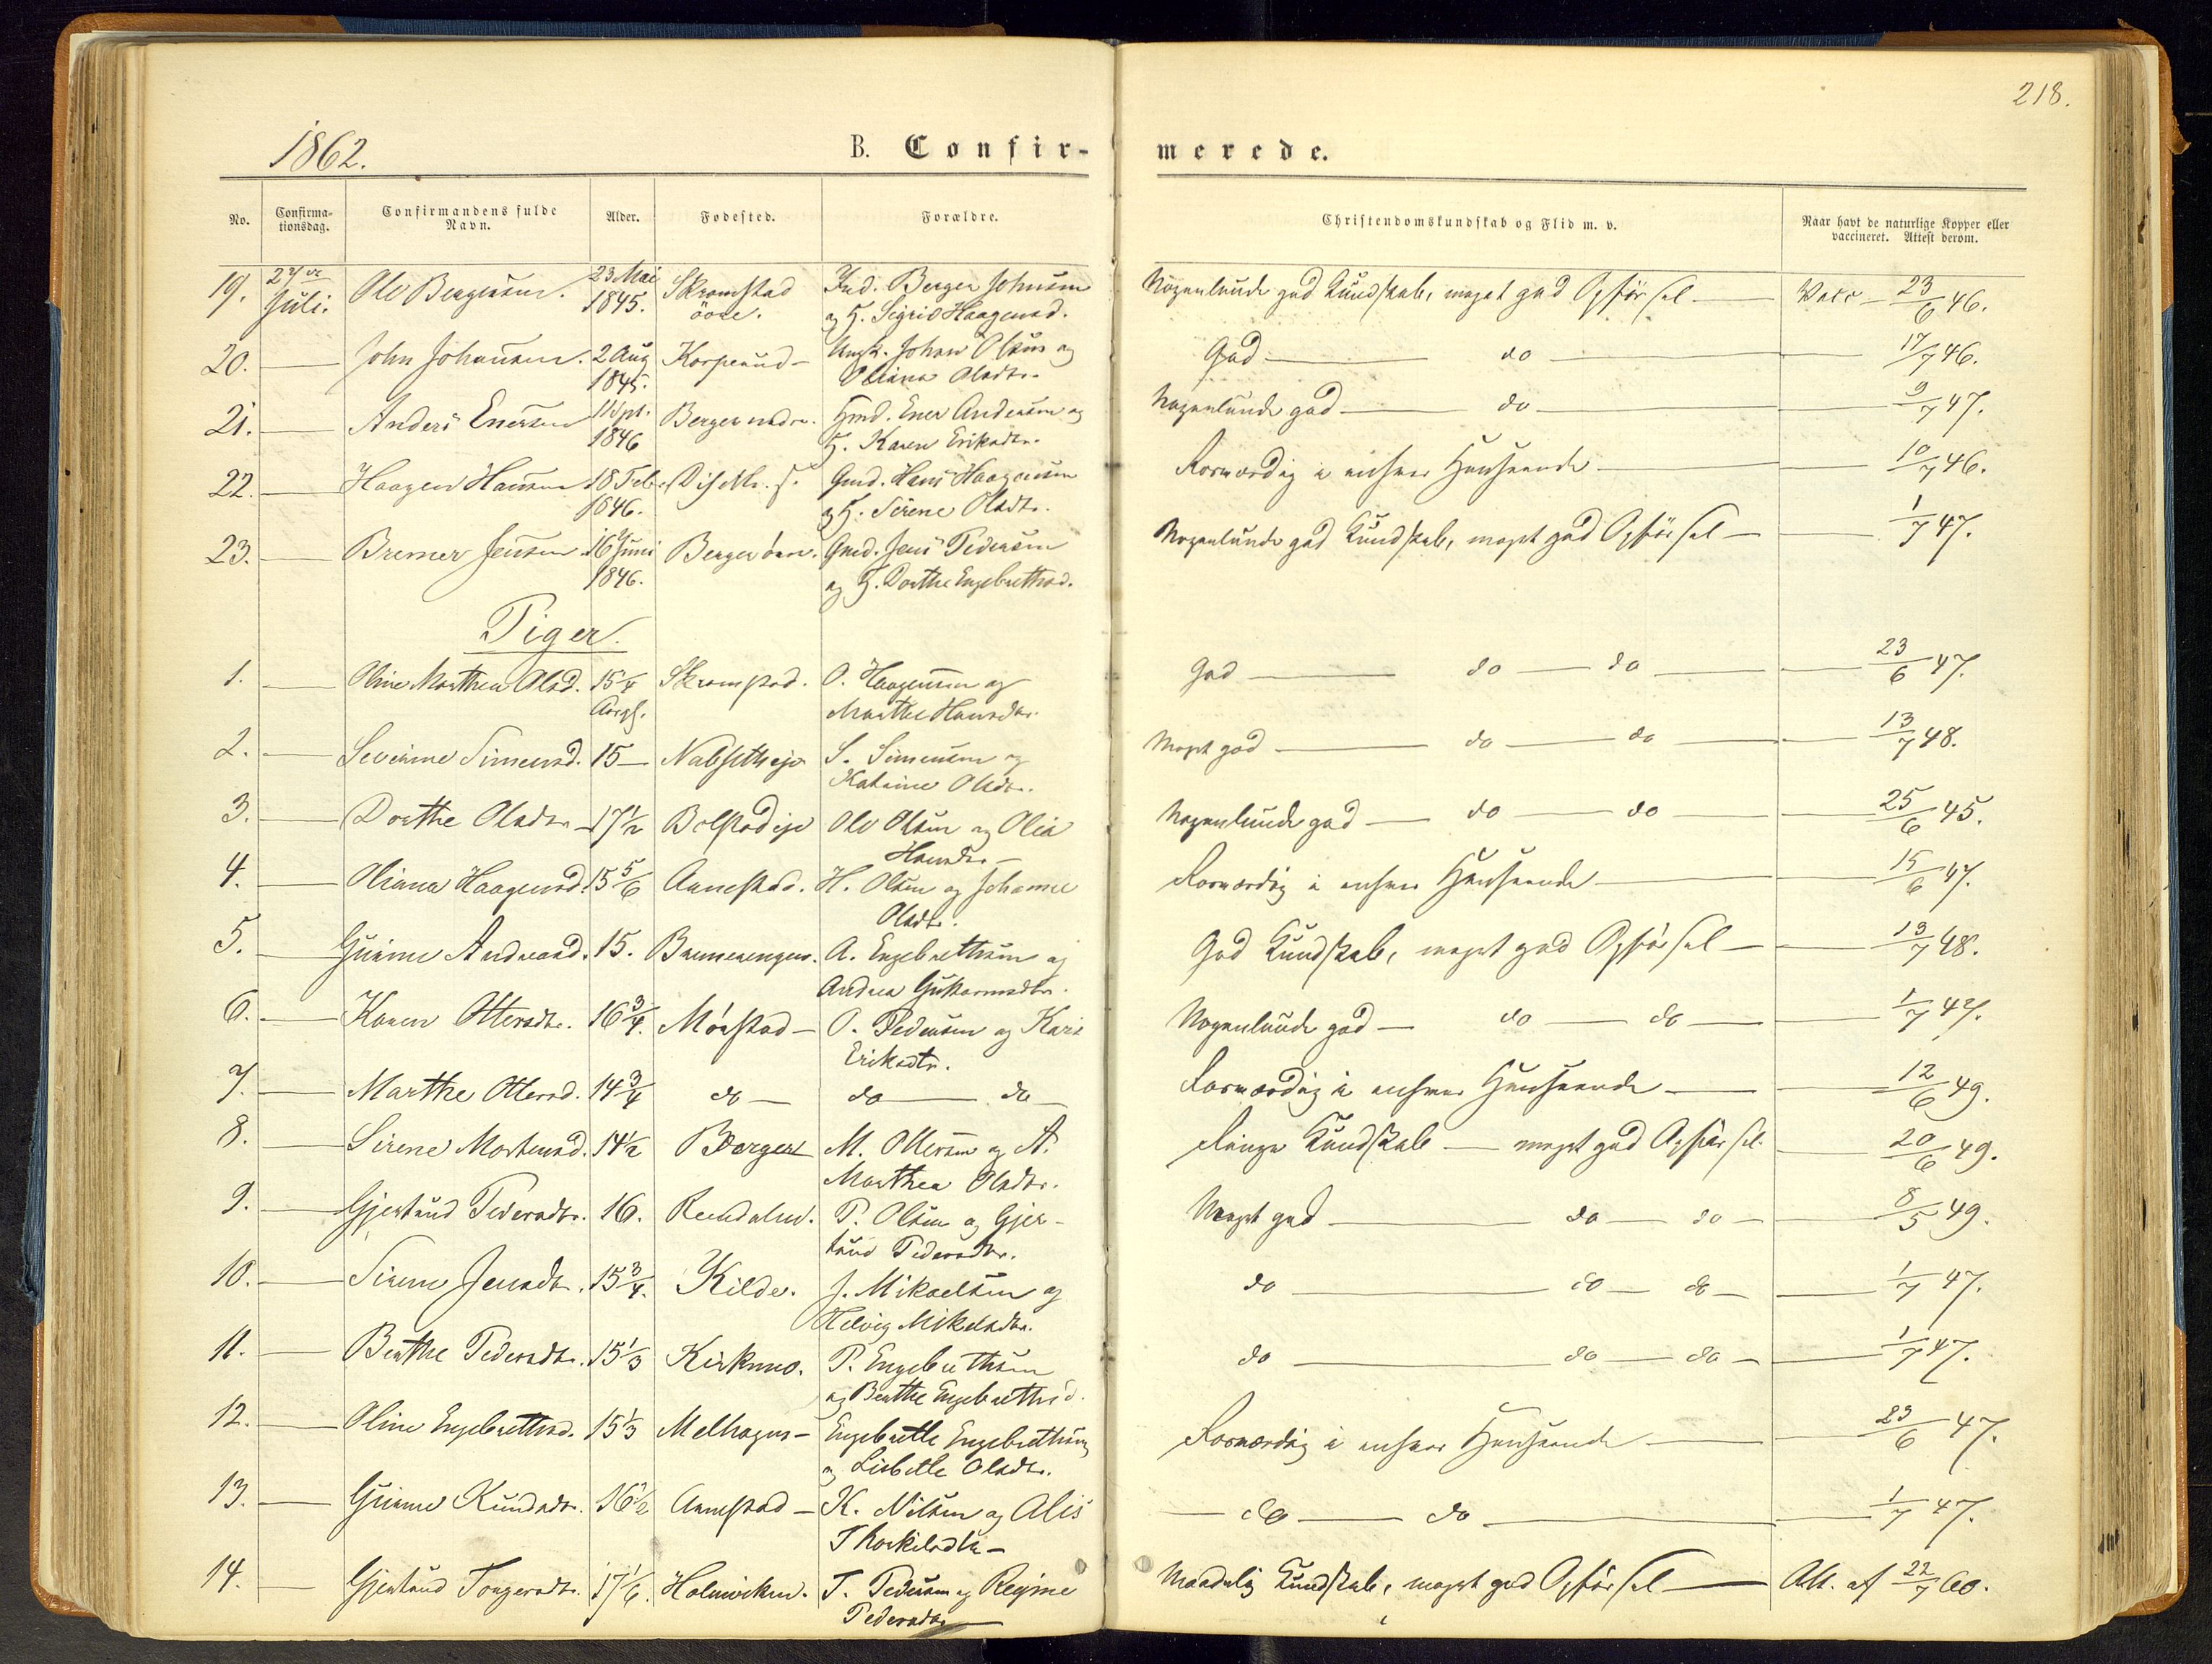 218.
1862.
B. Confir-
merede.
No.
Confirma-
tionsdag.
Confirmandens fulde
Navn.
Alder.
Fødested.
Forældre.
Christendomskundskab og Flid m. v.
Naar havt de naturlige Kopper eller
vaccineret. Attest derom.
19. Juli. Ole Bergersen. 23 Mai 1845. Skramstad Ind. Berger Johnsen
og H. Sigrid Haagensd.
Nogenlunde god Kundskab, meget god Opførsel — Vacc — 23/6 46.
20. — John Johansen. 2 Aug 1845. Johan Olsen og
Oliana Olsdtr.
God — do — 17/7 46.
21. — Anders Enersen 1846 Berger Ener Andersen og
H. Karen Eriksdtr.
Nogenlunde god — do — 9/7 47.
22. — Haagen Hansen 18 Feb. 1846. Gmd. Hans Haagensen
og H. Sirene Olsdtr.
Forsvarlig i enhver Henseende — 10/7 46.
23. — Bremer Jensen 16 Juni 1846. Berger Gmd. Jens Pedersen
og H. Dorthe Engebrethsd.
Nogenlunde god Kundskab, meget god Opførsel — 1/7 47.
Piger.
1. — Oline Marthea Olsd. 15 1/4 Skramstad. O. Haagensen og
Marthe Hansdtr.
God — do — do — 23/6 47.
2. — Severine Simensd. 15 — S. Simensen og
Katrine Olsdtr.
Meget god — do — do — 13/7 48.
3. — Dorthe Olsdtr. 17 1/2 Bolstadeje Ole Olsen og Olia
Hansdtr —
Nogenlunde god — do — do — 25/6 45.
4. — Oliana Haagensd. 15 5/6 Aanestad. H. Olsen og Johanne
Olsdtr.
Forsvarlig i enhver Henseende — 15/6 47.
5. — Gunine Andreasd. 15. A. Engebrethsen og
Andrea Guttormsdtr.
God Kundskab, meget god Opførsel — 13/7 48.
6. — Karen Ottersdtr. 16 3/4. Mørstad — O. Pedersen og Kari
Eriksdtr.
Nogenlunde god — do — do — 1/7 47.
7. — Marthe Ottersd. 14 3/4 do — do — do —
Forsvarlig i enhver Henseende — 12/6 49.
8. — Sirene Mortensd. 14 1/2 Berger M. Ottersen og A.
Marthea Olsdtr.
Ringe Kundskab — meget god Opførsel — 20/6 49.
9. — Gjertrud Pedersdtr. 16. P. Olsen og Gjer-
trud Pedersdtr.
Meget god — do — do — 8/5 49.
10. — Sirene Jensdtr. 15 3/4. Kilde. J. Mikaelsen og
Helvig Mikelsdtr.
do — do — do — 1/7 47.
11. — Berthe Pedersdtr. 15 1/3 Kirkemo. P. Engebrethsen
og Berthe Engebrethsd.
do — do — do — 1/7 47.
12. — Oline Engebrethsd. 15 1/3 Melhagen — Engebrette Engebrethsen
og Lisbette Olsdtr.
Forsvarlig i enhver Henseende — 23/6 47.
13. — Gunine Knudsdtr. 16 1/2 Aanestad — K. Nilsen og Alis
Thorkilsdtr —
— do — do — 1/7 47.
14. — Gjertrud Torgersdtr. 17 1/6. Holmviken. T. Pedersen og Regine
Pedersdtr —
Maadelig Kundskab, meget god Opførsel — Att. af 22/7 60.